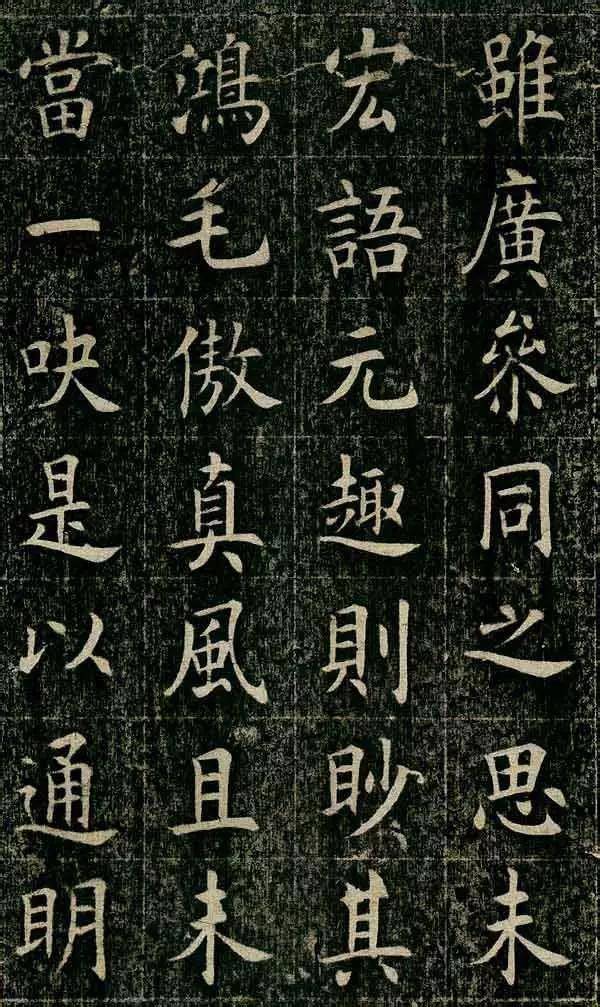 雖廣叅同之思未
宏語元趣則眇其
鴻毛傲真風且未
當一吷是以通明